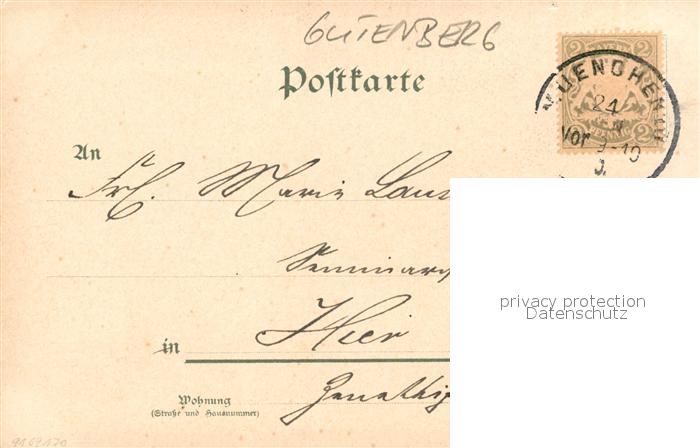 GUTENBERG
Postkarte
MUENCHEN
24
Vor 9-10
2 2
2 2
An
Frl. Marie
Seminars
in Hier
Wohnung
(Straße und Hausnummer)
privacy protection
Datenschutz